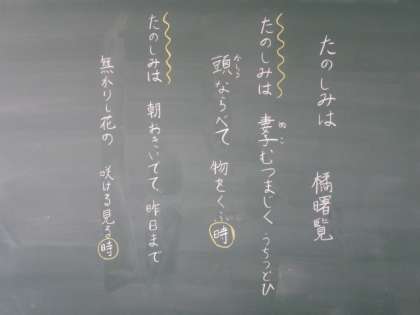 たのしみは　橘曙覧
たのしみは　妻子むつまじく　うちつどひ
めこ
頭ならべて　物をくふ時
かしら
たのしみは　朝おきいでて、昨日まで
無かりし花の　咲ける見る時